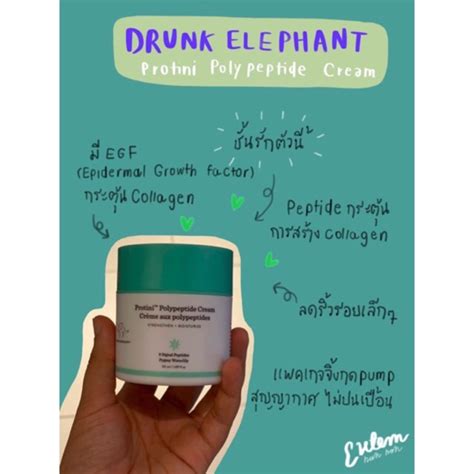 DRUNK ELEPHANT
Protini Polypeptide Cream
ชั้นรักตัวนี้
มี EGF
(Epidermal Growth factor)
กระตุ้น Collagen
Peptide กระตุ้น
การสร้าง collagen
ลดริ้วรอยเล็กๆ
แพคเกจจิ้งกดpump
สุญญากาศ ไม่ปนเปื้อน
Protini™ Polypeptide Cream
Crème aux polypeptides
STRENGTHEN + MOISTURIZE
9 Signal Peptides
Pygmy Waterlily